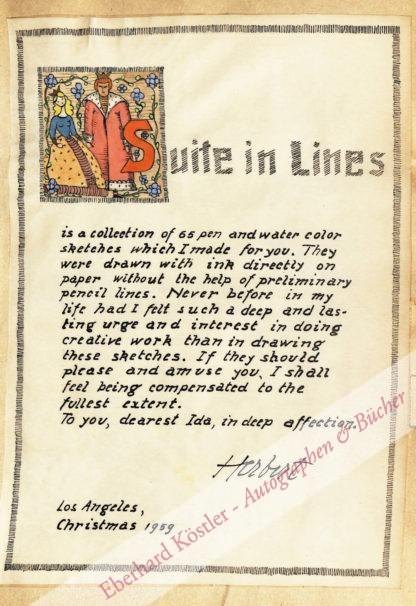 Suite in Lines
is a collection of 65 pen and water color
sketches which I made for you. They
were drawn with ink directly on
paper without the help of preliminary
pencil lines. Never before in my
life had I felt such a deep and las-
ting urge and interest in doing
creative work than in drawing
these sketches. If they should
please and amuse you, I shall
feel being compensated to the
fullest extent.
To you, dearest Ida, in deep affection.
Herbert
Los Angeles,
Christmas 1959.
Eberhard Köstler - Autographen & Bücher